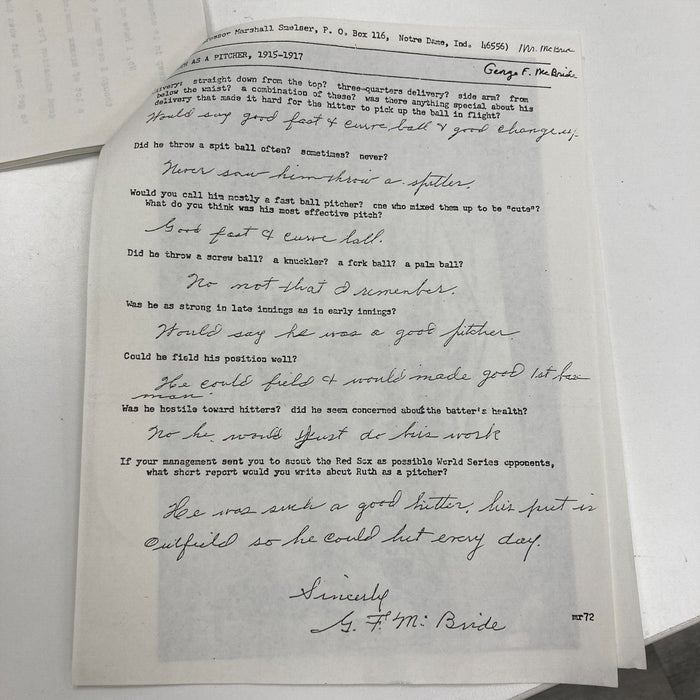 Marshall Smelser, P. O. Box 116, Notre Dame, Ind. 46556) Mr. McBride
AS A PITCHER, 1915-1917
George F. McBride
straight down from the top? three-quarters delivery? side arm? from
below the waist? a combination of these? was there anything special about his
delivery that made it hard for the hitter to pick up the ball in flight?
Would say good fast & curve ball & good change up.
Did he throw a spit ball often? sometimes? never?
Never saw him throw a spitter.
Would you call him mostly a fast ball pitcher? one who mixed them up to be "cute"?
What do you think was his most effective pitch?
Good fast & curve ball.
Did he throw a screw ball? a knuckler? a fork ball? a palm ball?
No not that I remember.
Was he as strong in late innings as in early innings?
Would say he was a good pitcher
Could he field his position well?
He could field & would made good 1st base
man.
Was he hostile toward hitters? did he seem concerned about the batter's health?
No he would just do his work
If your management sent you to scout the Red Sox as possible World Series opponents,
what short report would you write about Ruth as a pitcher?
He was such a good hitter, his put in
Outfield so he could hit every day.
Sincerly
G. F. Mc Bride
mr72